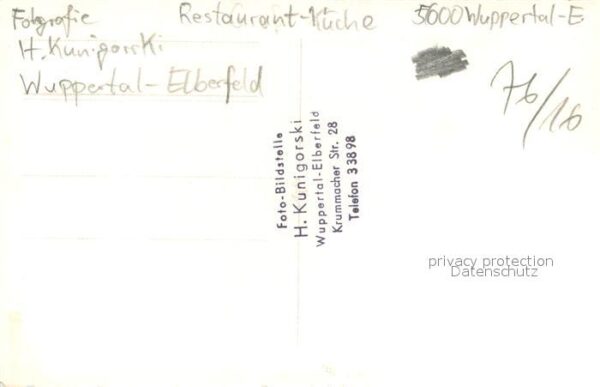 Fotografie Restaurant-Küche 5600 Wuppertal-E
H. Kunigorski
Wuppertal-Elberfeld
76/16
Foto-Bildstelle
H. Kunigorski
Wuppertal-Elberfeld
Krummacher Str. 28
Telefon 33898
privacy protection
Datenschutz